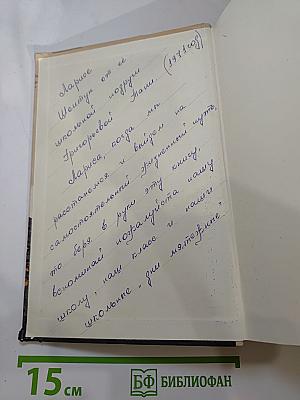 Ларисе
Шевтун от её
школьной подруги
Григорьевой Тани. (1971 год)
Лариса, когда мы
расстанемся и выйдем на
самостоятельный жизненный путь,
то беря в руки эту книгу,
вспоминай пожалуйста нашу
школу, наш класс и наши
школьные, дни мятежные.
15 см
БФ БИБЛИОФАН